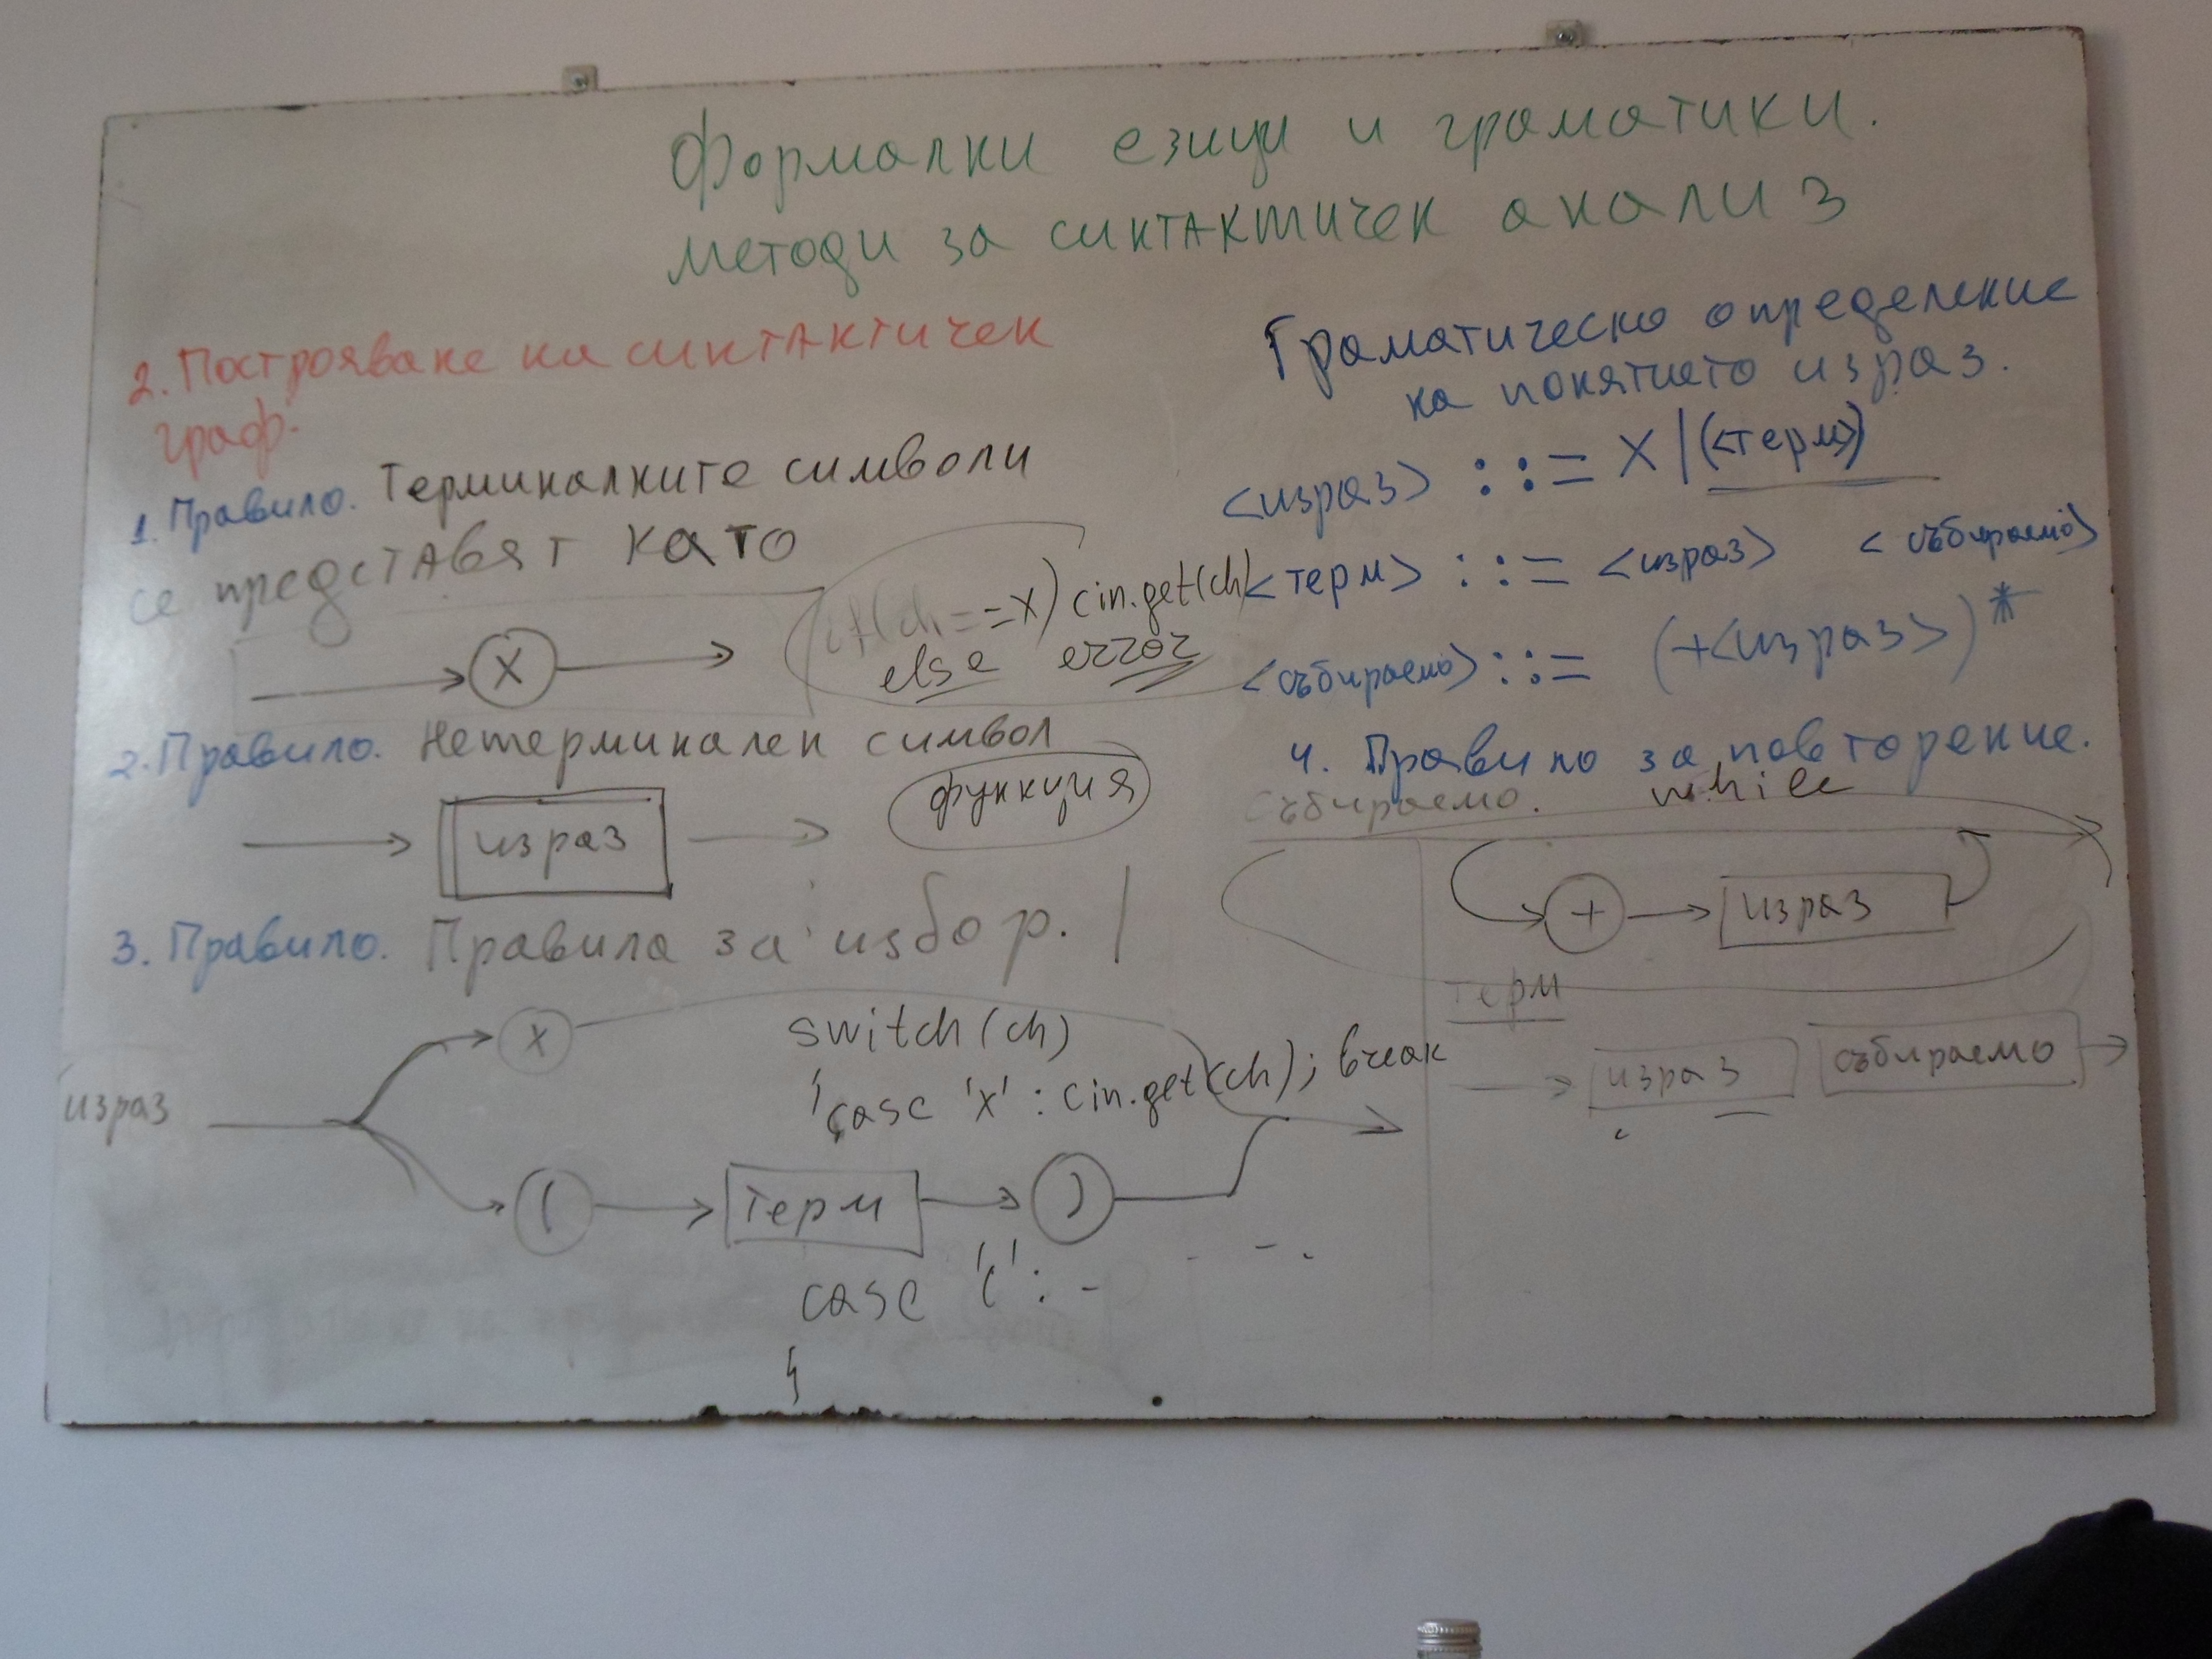 Формални езици и граматики.
методи за синтактичен анализ
2. Построяване на синтактичен
граф.
1. Правило. Терминалните символи
се представят като
X
if(ch==X) cin.get(ch)
else error
2. Правило. Нетерминален символ
израз
функция
3. Правило. Правила за избор. |
израз
X
switch(ch)
{ case 'x' : cin.get(ch); break
( терм )
case '(' : - - - .
}
Граматическо определение
на понятието израз.
<израз> ::= X|(<терм>)
<терм> ::= <израз> <събираемо>
<събираемо> ::= (+<израз>)*
4. Правило за повторение.
Събираемо. while
+ израз
терм
израз събираемо